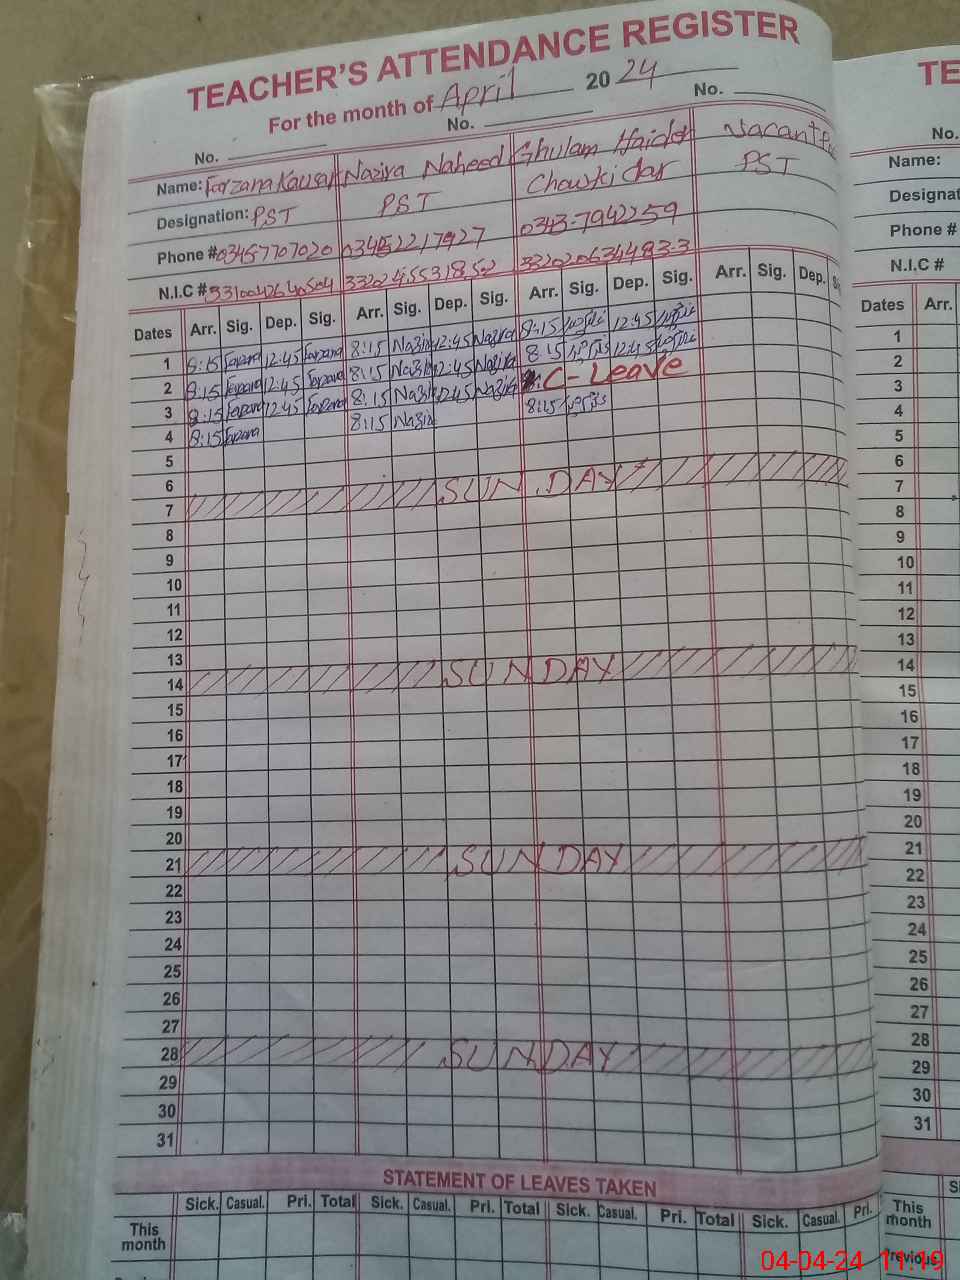 TEACHER'S ATTENDANCE REGISTER
For the month of April 2024
No. No. No.
Name: Farzana Kausar Nazira Naheed Ghulam Haider Vacant
Designation: PST PST Chowkidar PST
Phone # 0345-7707020 0343-7942259
N.I.C #
Dates Arr. Sig. Dep. Sig. Arr. Sig. Dep. Sig. Arr. Sig. Dep. Sig. Arr. Sig. Dep.
1 8:15 Farzana 12:45 Farzana 8:15 Nazira 12:45 Nazira 8:15 12:45
2 8:15 Farzana 12:45 Farzana 8:15 Nazira 12:45 Nazira 8:15 12:45
3 8:15 Farzana 12:45 Farzana 8:15 Nazira 12:45 Nazira C-Leave
4 8:15 Farzana 8:15 Nazira 8:15
5
6
7 SUNDAY
8
9
10
11
12
13
14 SUNDAY
15
16
17
18
19
20
21 SUNDAY
22
23
24
25
26
27
28 SUNDAY
29
30
31
STATEMENT OF LEAVES TAKEN
Sick. Casual. Pri. Total Sick. Casual. Pri. Total Sick. Casual. Pri. Total Sick. Casual. Pri.
This
month
TE
No.
Name:
Designat
Phone #
N.I.C #
Dates Arr.
1
2
3
4
5
6
7
8
9
10
11
12
13
14
15
16
17
18
19
20
21
22
23
24
25
26
27
28
29
30
31
This
month
Previous
04-04-24 11:19